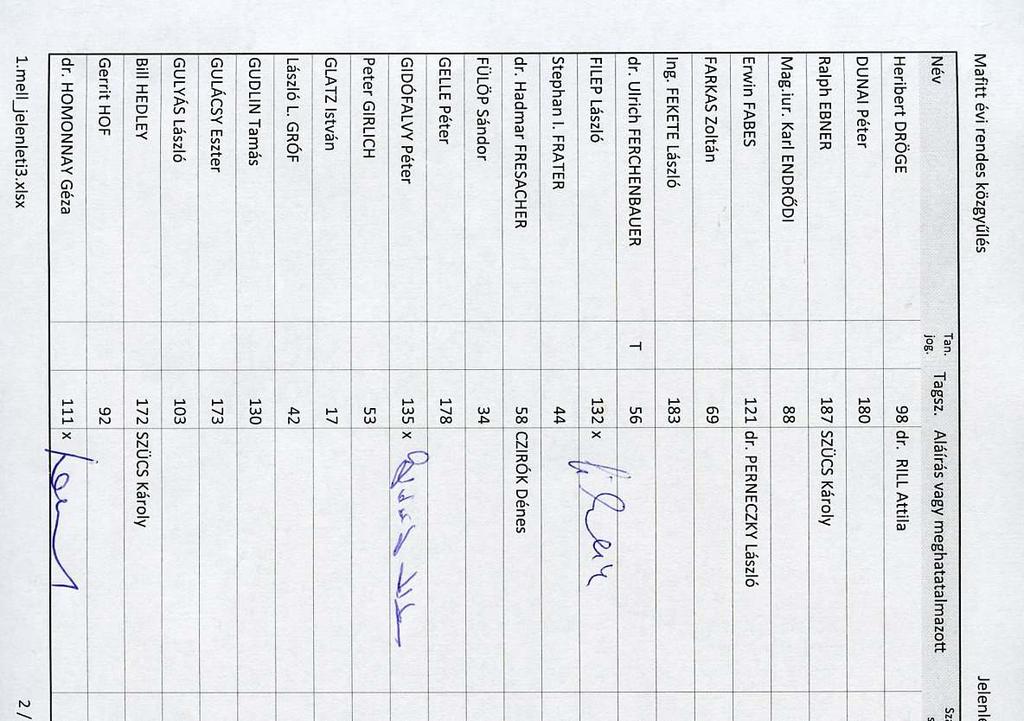 Mafitt évi rendes közgyűlés Jelenle
Név Tan. jog. Tagsz. Aláírás vagy meghatatalmazott
Heribert DRÖGE 98 dr. RILL Attila
DUNAI Péter 180
Ralph EBNER 187 SZÜCS Károly
Mag.iur. Karl ENDRŐDI 88
Erwin FABES 121 dr. PERNECZKY László
FARKAS Zoltán 69
Ing. FEKETE László 183
dr. Ulrich FERCHENBAUER T 56
FILEP László 132 x
Stephan I. FRATER 44
dr. Hadmar FRESACHER 58 CZIRÓK Dénes
FÜLÖP Sándor 34
GELLE Péter 178
GIDÓFALVY Péter 135 x
Peter GIRLICH 53
GLATZ István 17
László L. GRÓF 42
GUDLIN Tamás 130
GULÁCSY Eszter 173
GULYÁS László 103
Bill HEDLEY 172 SZÜCS Károly
Gerrit HOF 92
dr. HOMONNAY Géza 111 x
1.mell_jelenleti3.xlsx 2 /